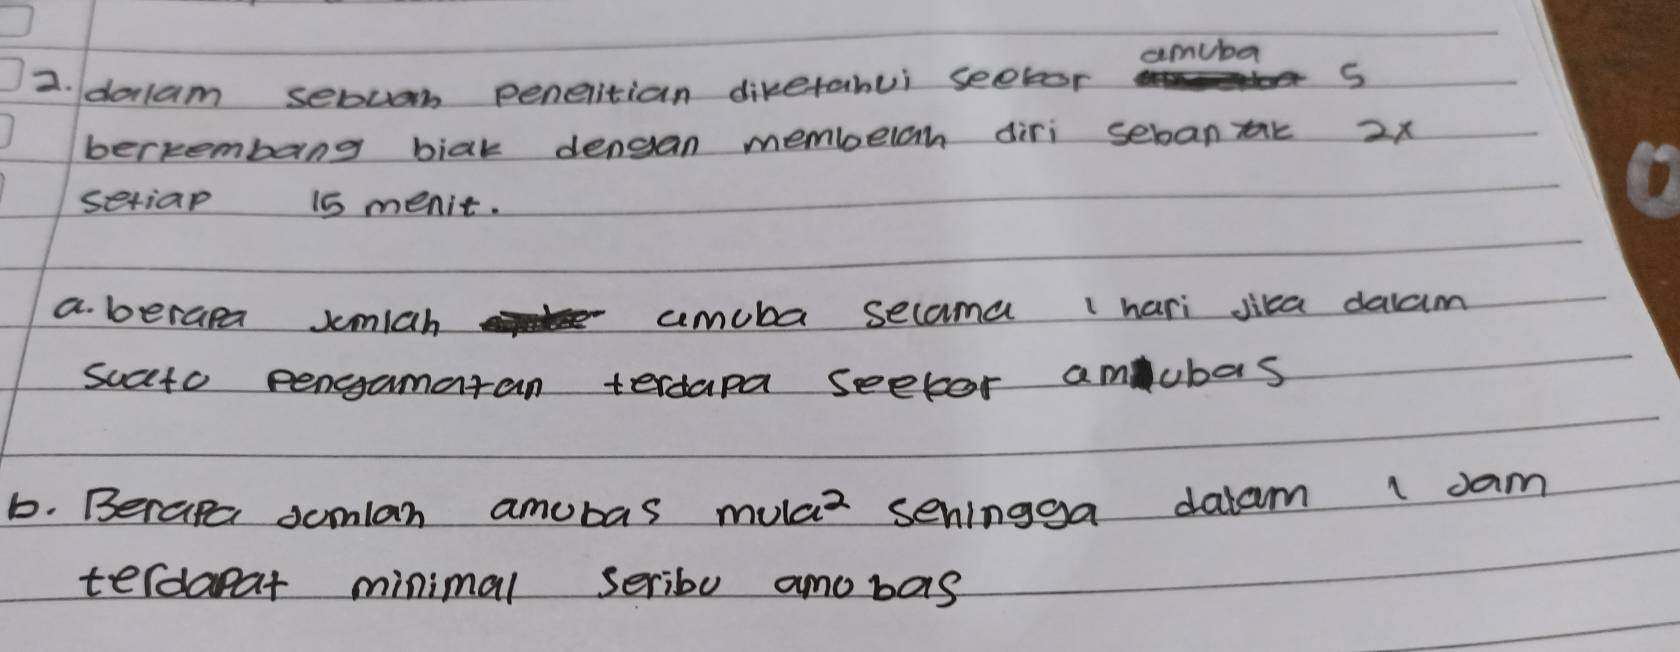 2. dalam sebuah peneitian diketahui seekor amuba S
berkembang biak dengan membelah diri sebanyak 2x
setiap 15 menit.
a. berapa jumlah amuba selama 1 hari jika dalam
suato pengamatan terdapa seekor amubas
b. Berapa jumlah amubas mula² sehingga dalam 1 jam
terdapat minimal seribu amobas